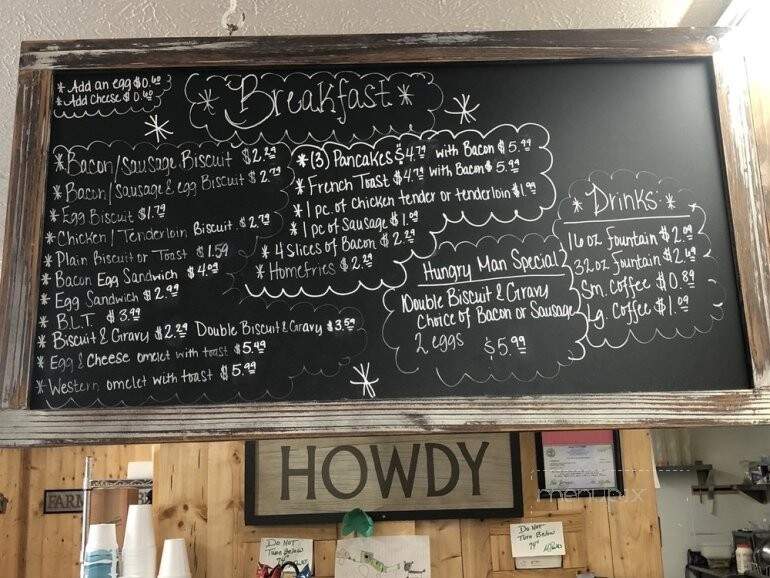 * Add an egg $0.60
* Add cheese $0.60
* Breakfast *
* Bacon/Sausage Biscuit $2.29
* Bacon/Sausage & egg Biscuit $2.79
* Egg Biscuit $1.79
* Chicken/Tenderloin Biscuit $2.79
* Plain Biscuit or Toast $1.59
* Bacon Egg Sandwich $4.09
* Egg Sandwich $2.99
* B.L.T. $3.99
* Biscuit & Gravy $2.29 Double Biscuit & Gravy $3.59
* Egg & Cheese omelet with toast $5.49
* Western omelet with toast $5.99
* (3) Pancakes $4.79 with Bacon $5.99
* French Toast $4.79 with Bacon $5.99
* 1 pc. of chicken tender or tenderloin $1.99
* 1 pc of Sausage $1.09
* 4 slices of Bacon $2.29
* Homefries $2.29
Hungry Man Special
1 Double Biscuit & Gravy
Choice of Bacon or Sausage
2 eggs $5.99
* Drinks: *
16 oz fountain $2.09
32 oz fountain $2.49
Sm. Coffee $0.89
Lg. Coffee $1.09
HOWDY
FARM
Do NOT
Turn Below
Do NOT
Turn Below
menupix